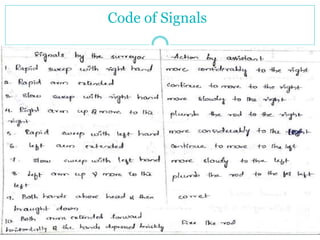 Code of Signals
Signals by the surveyor Action by assistant
1. Rapid sweep with right hand move considerably to the right
2. Rapid arm extended continue to move to the right
3. Slow sweep with right hand move slowly to the right
4. Right arm up & move to the right plumb the rod to the right
5. Rapid sweep with left hand move considerably to the left
6. left arm extended continue to move to the left
7. slow sweep with left hand move slowly to the left
8. left arm up & move to the left plumb the rod to the left
9. Both hands above head & then brought down correct
10. Both arm extended forward horizontally & the hands depressed briskly Fix the rod